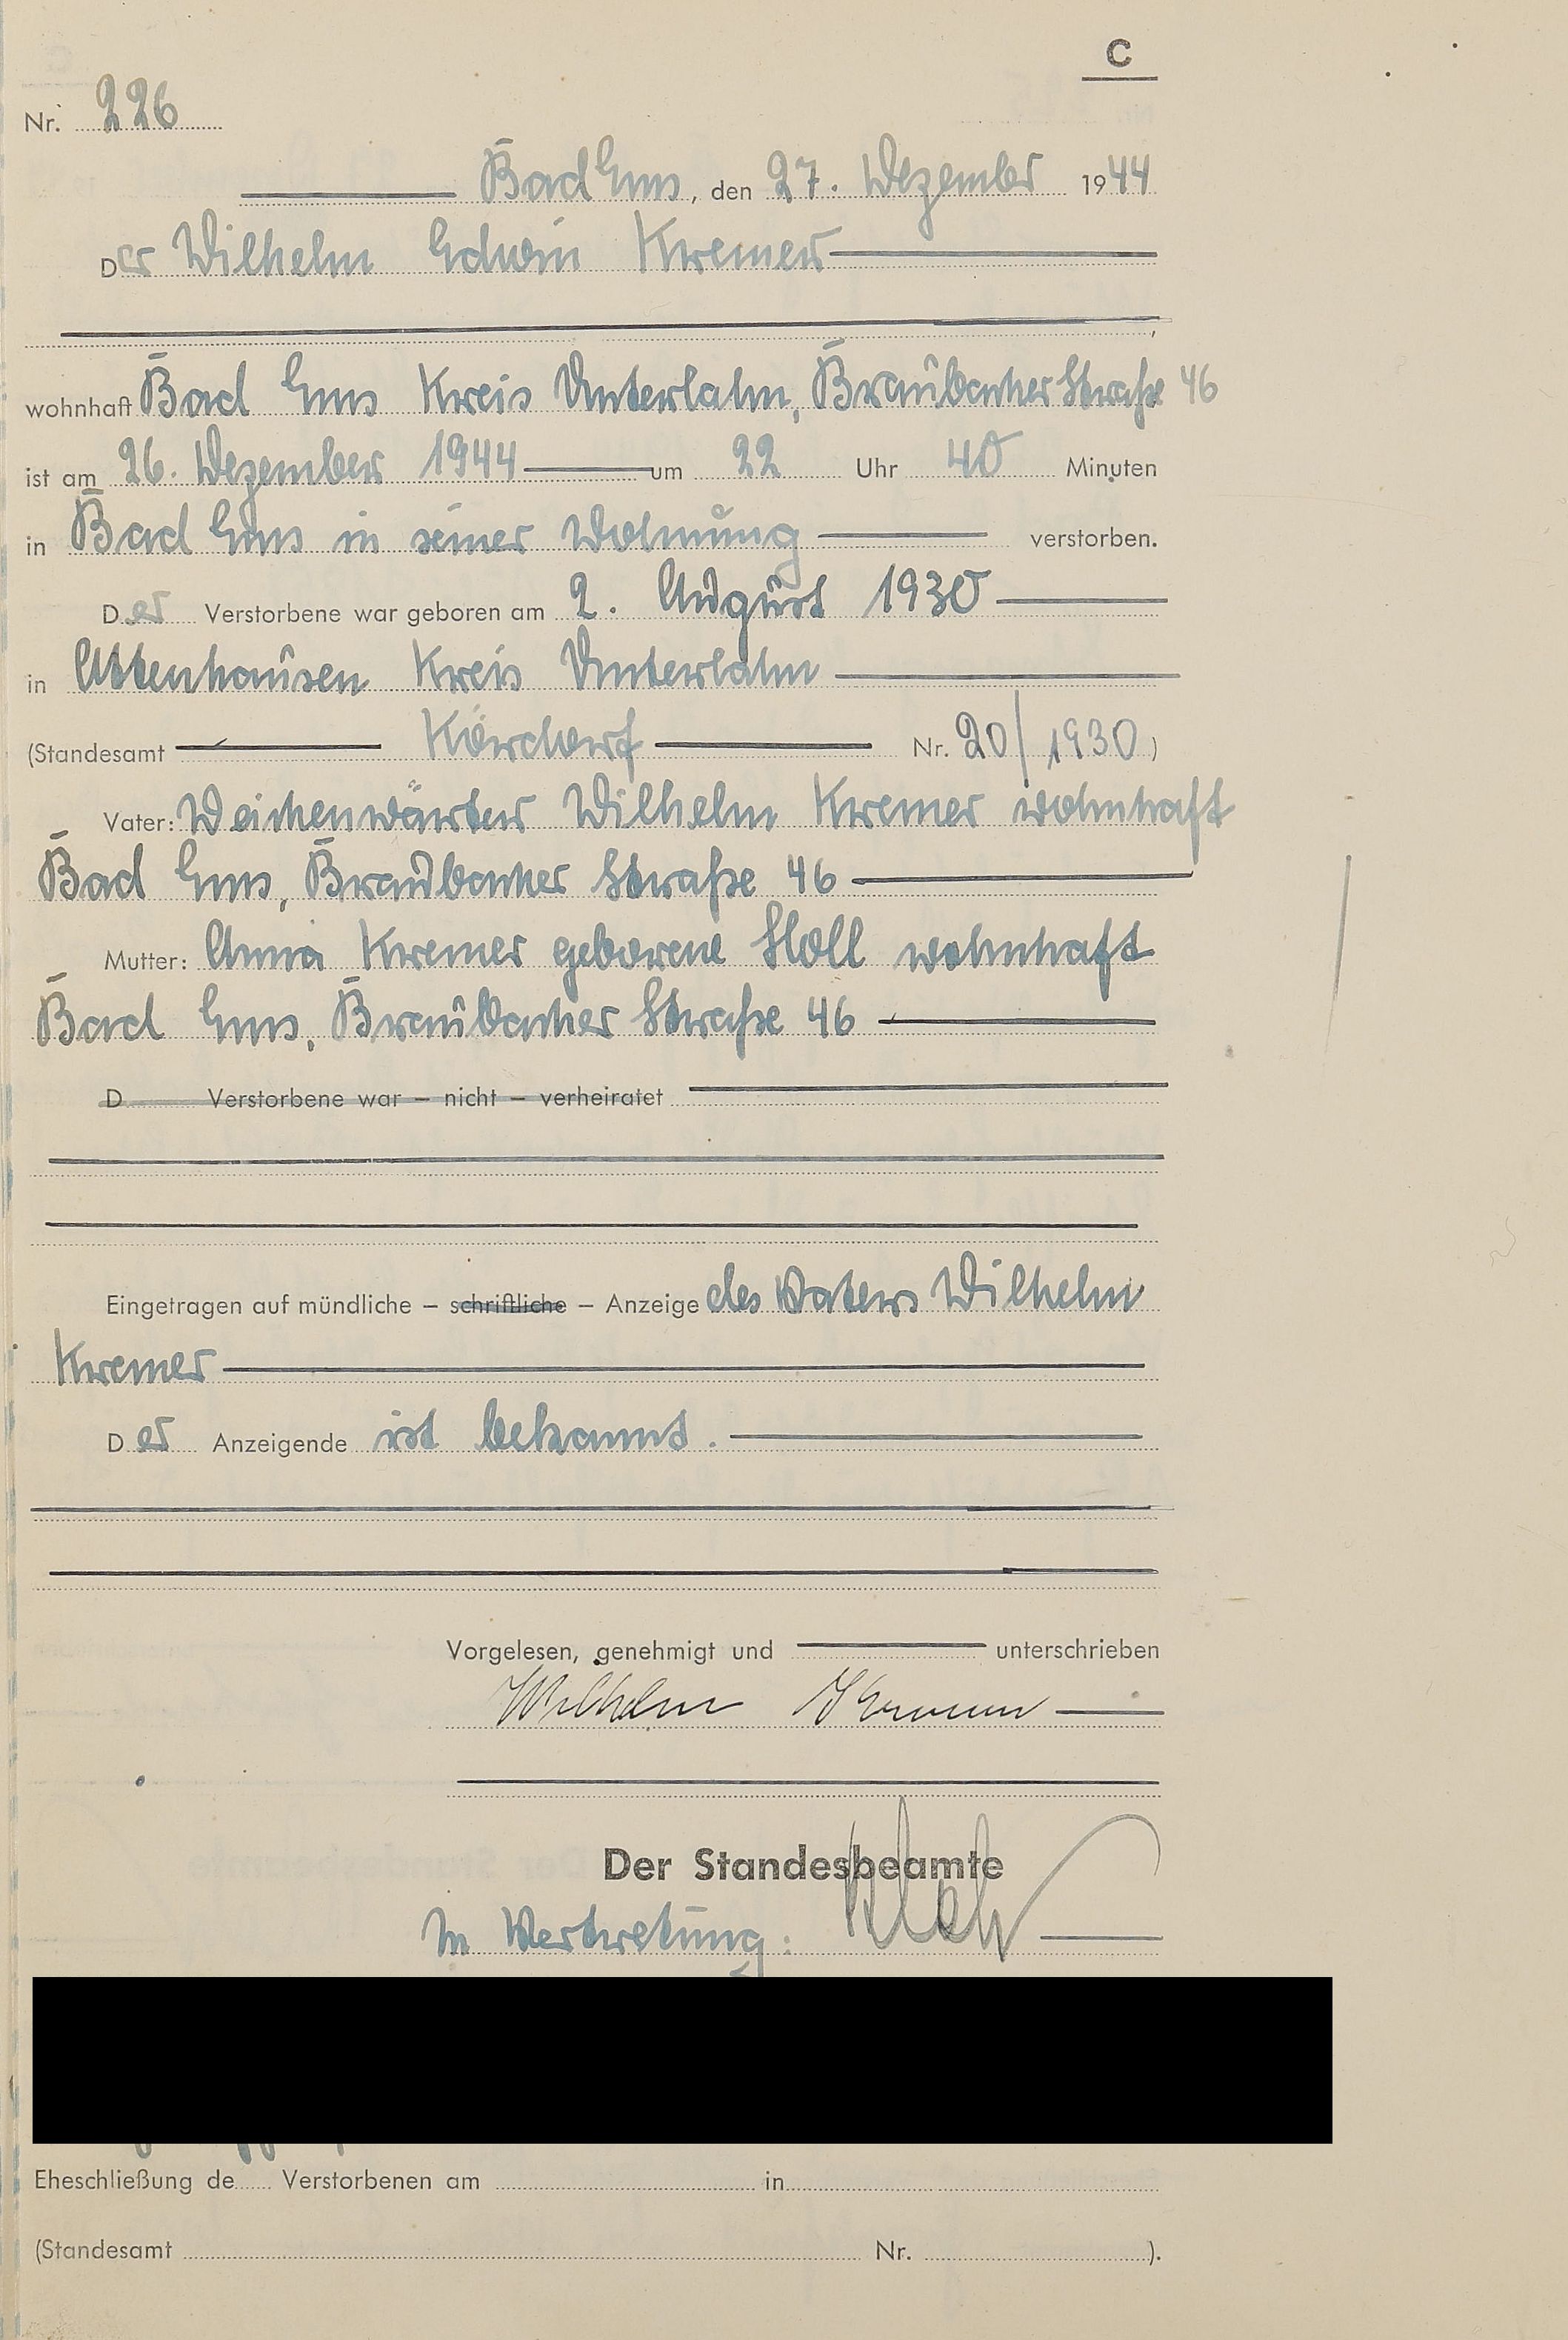 C
Nr. 226
Bad Ems, den 27. Dezember 1944
Der Wilhelm Edwin Kremer
wohnhaft Bad Ems Kreis Unterlahn, Braubacher Straße 46
ist am 26. Dezember 1944 um 22 Uhr 40 Minuten
in Bad Ems in seiner Wohnung verstorben.
Der Verstorbene war geboren am 2. August 1930
in Attenhausen Kreis Unterlahn
(Standesamt Kördorf Nr. 20/1930)
Vater: Weichenwärter Wilhelm Kremer wohnhaft
Bad Ems, Braubacher Straße 46
Mutter: Anna Kremer geborene Stoll wohnhaft
Bad Ems, Braubacher Straße 46
D Verstorbene war – nicht – verheiratet
Eingetragen auf mündliche – schriftliche – Anzeige des Vaters Wilhelm
Kremer
Der Anzeigende ist bekannt.
Vorgelesen, genehmigt und unterschrieben
Wilhelm Kremer
Der Standesbeamte
In Vertretung:
Eheschließung de Verstorbenen am in
(Standesamt Nr. ).